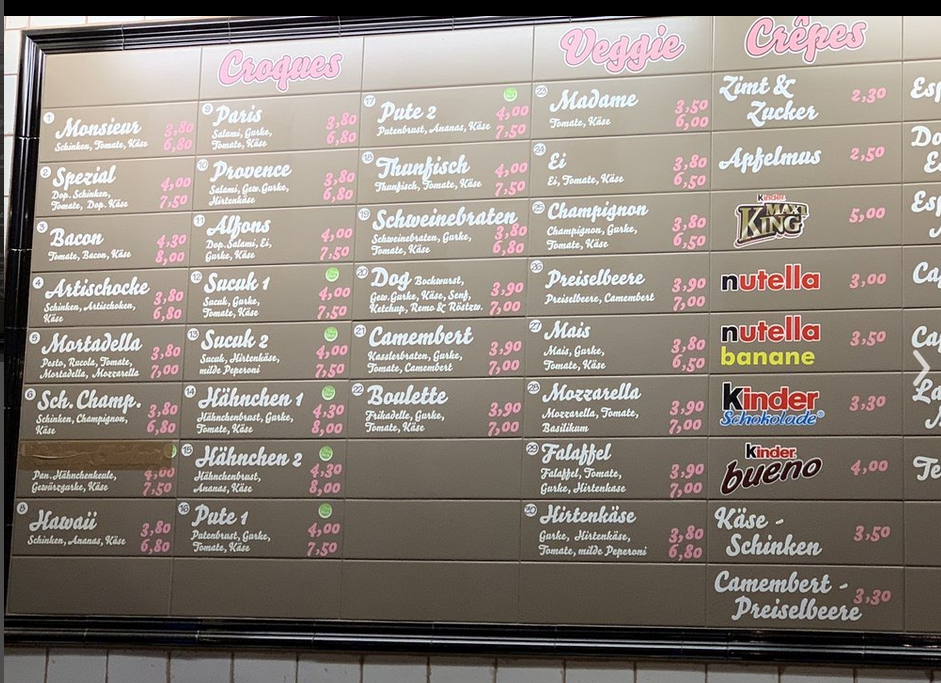 Croques
1 Monsieur 3,80
Schinken, Tomate, Käse 6,80
2 Spezial 4,00
Dop. Schinken,
Tomate, Dop. Käse 7,50
3 Bacon 4,30
Tomate, Bacon, Käse 8,00
4 Artischocke
Schinken, Artischoken, 3,80
Käse 6,80
5 Mortadella
Pesto, Rucola, Tomate, 3,80
Mortadella, Mozzarella 7,00
6 Sch. Champ.
Schinken, Champignon, 3,80
Käse 6,80
Pan. Hähnchenkeule, 4,00
Gewürzgurke, Käse 7,50
8 Hawaii 3,80
Schinken, Ananas, Käse 6,80
9 Paris 3,80
Salami, Gurke,
Tomate, Käse 6,80
10 Provence 3,80
Salami, Gew.Gurke,
Hirtenkäse 6,80
11 Alfons
Dop. Salami, Ei, 4,00
Gurke, Käse 7,50
12 Sucuk 1
Sucuk, Gurke, 4,00
Tomate, Käse 7,50
13 Sucuk 2
Sucuk, Hirtenkäse, 4,00
milde Peperoni 7,50
14 Hähnchen 1
Hähnchenbrust, Gurke, 4,30
Tomate, Käse 8,00
15 Hähnchen 2
Hähnchenbrust, 4,30
Ananas, Käse 8,00
16 Pute 1
Putenbrust, Gurke, 4,00
Tomate, Käse 7,50
17 Pute 2 4,00
Putenbrust, Ananas, Käse 7,50
18 Thunfisch 4,00
Thunfisch, Tomate, Käse 7,50
19 Schweinebraten
Schweinebraten, Gurke, 3,80
Tomate, Käse 6,80
20 Dog Bockwurst,
Gew.Gurke, Käse, Senf, 3,90
Ketchup, Remo & Röstzw. 7,00
21 Camembert
Kasslerbraten, Gurke, 3,90
Tomate, Camembert 7,00
22 Boulette
Frikadelle, Gurke, 3,90
Tomate, Käse 7,00
Veggie
23 Madame 3,50
Tomate, Käse 6,00
24 Ei 3,80
Ei, Tomate, Käse 6,50
25 Champignon
Champignon, Gurke, 3,80
Tomate, Käse 6,50
26 Preiselbeere 3,90
Preiselbeere, Camembert 7,00
27 Mais
Mais, Gurke, 3,80
Tomate, Käse 6,50
28 Mozzarella
Mozzarella, Tomate, 3,90
Basilikum 7,00
29 Falaffel
Falaffel, Tomate, 3,90
Gurke, Hirtenkase 7,00
30 Hirtenkäse
Gurke, Hirtenkäse, 3,80
Tomate, milde Peperoni 6,80
Crêpes
Zimt &
Zucker 2,30
Apfelmus 2,50
Kinder
MAXI
KING 5,00
nutella 3,00
nutella
banane 3,50
Kinder
Schokolade® 3,30
Kinder
bueno 4,00
Käse -
Schinken 3,50
Camembert -
Preiselbeere 3,30